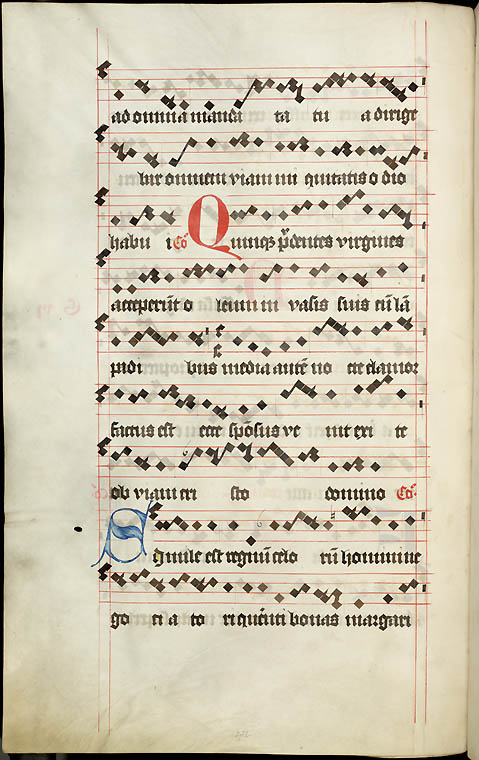 ad omnia manda ta tu a dirige
bar omnem viam ini quitatis o dio
habu i Co Quinqz pdentes virgines
acceperūt o leum in vasis suis cū lā
padi bus media autē no cte clamor
factus est ecce spōsus ve nit exi te
ob viam cri sto domino Co
Simile est regnū celo rū homini ne
go ci a to ri querēti bonas margari